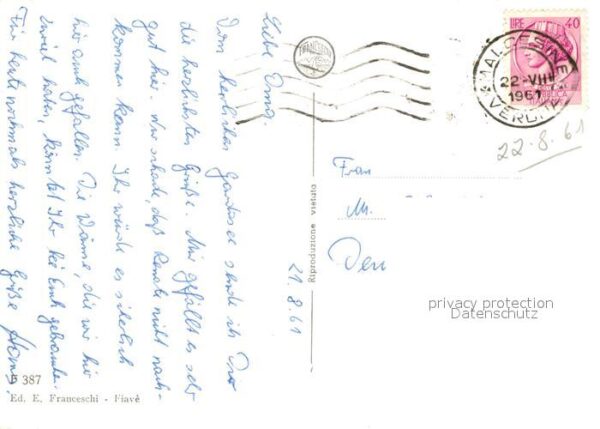 Liebe Oma.
Vom herrlichen Gardasee sende ich Dir
die herzlichsten Grüße. Mir gefällt es sehr
gut hier. Nur schade, daß Renate nicht nach-
kommen kann. Ihr würde es sicherlich
hier auch gefallen. Die Wärme, die wir hier
zuviel haben, könntet Ihr bei Euch gebrauchen.
Für heute nochmals herzliche Grüße
21.8.61
387
Ed. E. Franceschi - Fiavè
Riproduzione vietata
FRANCESCHI
LIRE 40
MALCESINE
22-VIII
1961
VERONA
22.8.61
Frau
M.
Den
privacy protection
Datenschutz